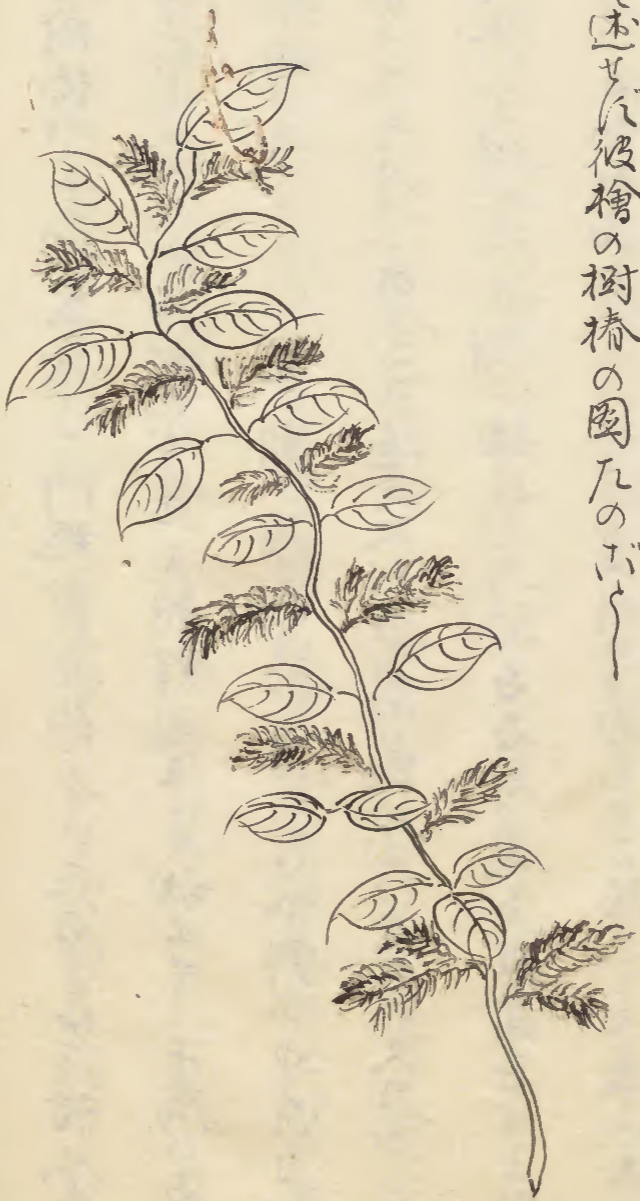 述せず彼檜の樹椿の図左のごとし